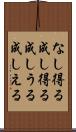 なし得る
成し得る
成しうる
成しえる